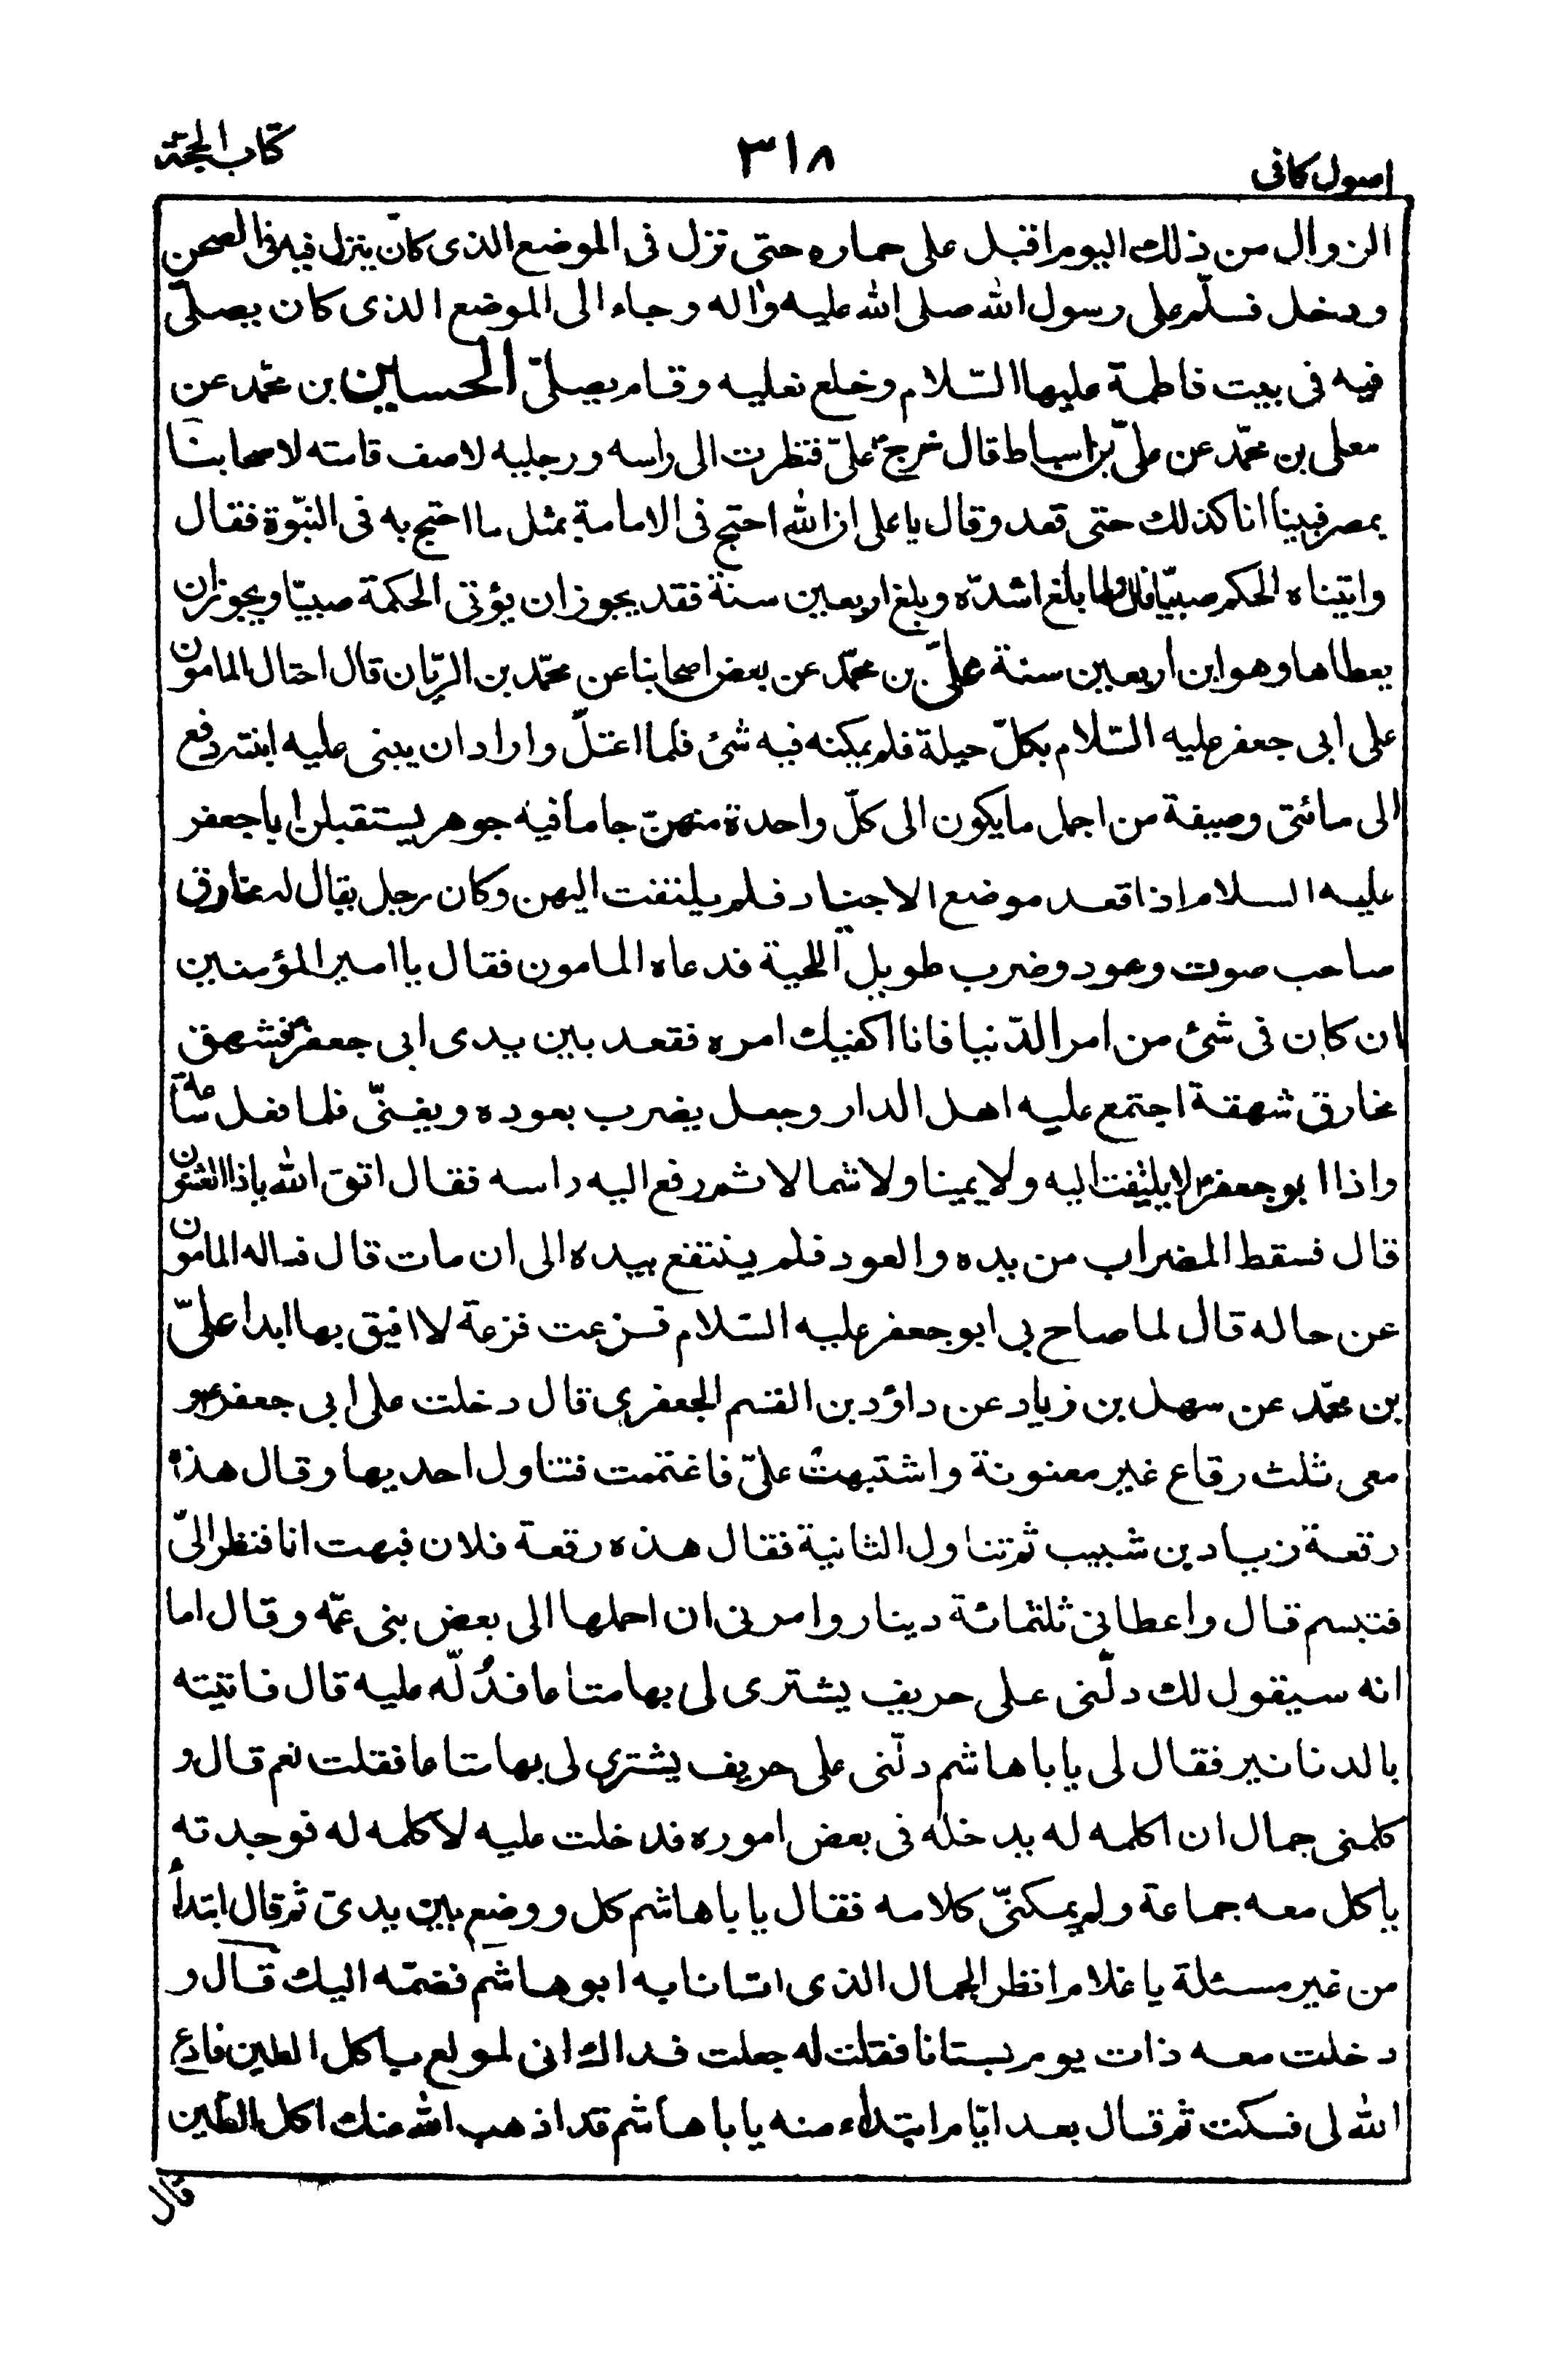 اصول كافى
٣١٨
كتاب الحجّة
الزوال من ذلك اليوم اقبل على حماره حتى نزل فى الموضع الذى كان ينزل فيه فى الصحن
ودخل فسلّم على رسول الله صلى الله عليه واله وجاء الى الموضع الذى كان يصلّى
فيه فى بيت فاطمة عليها السّلام وخلع نعليه وقام يصلّى الحسين بن محمّد عن
معلى بن محمّد عن علىّ بن اسباط قال خرج ع علىّ فنظرت الى راسه ورجليه لاصف قامته لاصحابنا
بمصر فبينا انا كذلك حتى قعد وقال يا على ان الله احتج فى الامامة بمثل ما احتج به فى النبّوة فقال
واتيناه الحكم صبيّا قال ولما بلغ اشدّه وبلغ اربعين سنة فقد يجوز ان يؤتى الحكمة صبيّا ويجوز ان
يعطاها وهو ابن اربعين سنة علىّ بن محمّد عن بعض اصحابنا عن محمّد بن الريّان قال احتال المامون
على ابى جعفر عليه السّلام بكلّ حيلة فلم يمكنه فيه شئ فلما اعتلّ واراد ان يبنى عليه ابنته دفع
الى مائتى وصيفة من اجمل ما يكون الى كلّ واحدة منهنّ جاما فيه جوهر يستقبلن ابا جعفر
عليه السلام اذا قعد موضع الاجناد فلم يلتفت اليهن وكان رجل يقال له مخارق
صاحب صوت وعود وضرب طويل اللحية فدعاه المامون فقال يا امير المؤمنين
ان كان فى شئ من امر الدّنيا فانا اكفيك امره فقعد بين يدى ابى جعفر ع فشهق
مخارق شهقة اجتمع عليه اهل الدار وجعل يضرب بعوده ويغنّى فلما فعل ساعة
واذا ابو جعفر ع لا يلتفت اليه ولا يمينا ولا شمالا ثم رفع اليه راسه فقال اتق الله ياذا العثنون
قال فسقط المضراب من يده والعود فلم ينتفع بيده الى ان مات قال فساله المامون
عن حاله قال لما صاح بى ابو جعفر عليه السّلام فزعت فزعة لا افيق بها ابدا علىّ
بن محمّد عن سهل بن زياد عن داؤد بن القسم الجعفرى قال دخلت على ابى جعفر ع و
معى ثلث رقاع غير معنونة واشتبهت علىّ فاغتممت فتناول احديها وقال هذه
رقعة زياد بن شبيب ثم تناول الثانية فقال هذه رقعة فلان فبهت انا فنظر الىّ
فتبسم قال واعطانى ثلثمائة دينار وامرنى ان احملها الى بعض بنى عمّه وقال اما
انه سيقول لك دلّنى على حريف يشترى لى بها متاعا فدُلّه عليه قال فاتيته
بالدنانير فقال لى يا با هاشم دلّنى على حريف يشترى لى بها متاعا فقلت نعم قال و
كلمنى جمال ان اكلمه له يدخله فى بعض اموره فدخلت عليه لاكلمه له فوجدته
ياكل معه جماعة ولم يمكنّى كلامه فقال يا با هاشم كل ووضع بين يدىّ ثم قال ابتداً
من غير مسئلة يا غلام انظر الجمال الذى اتانا به ابو هاشم فضمّه اليك قال و
دخلت معه ذات يوم بستانا فقلت له جعلت فداك انى لمولع باكل الطين فادع
الله لى فسكت ثم قال بعد ايّام ابتداء منه يا با هاشم قد اذهب الله عنك اكل الطين
قال